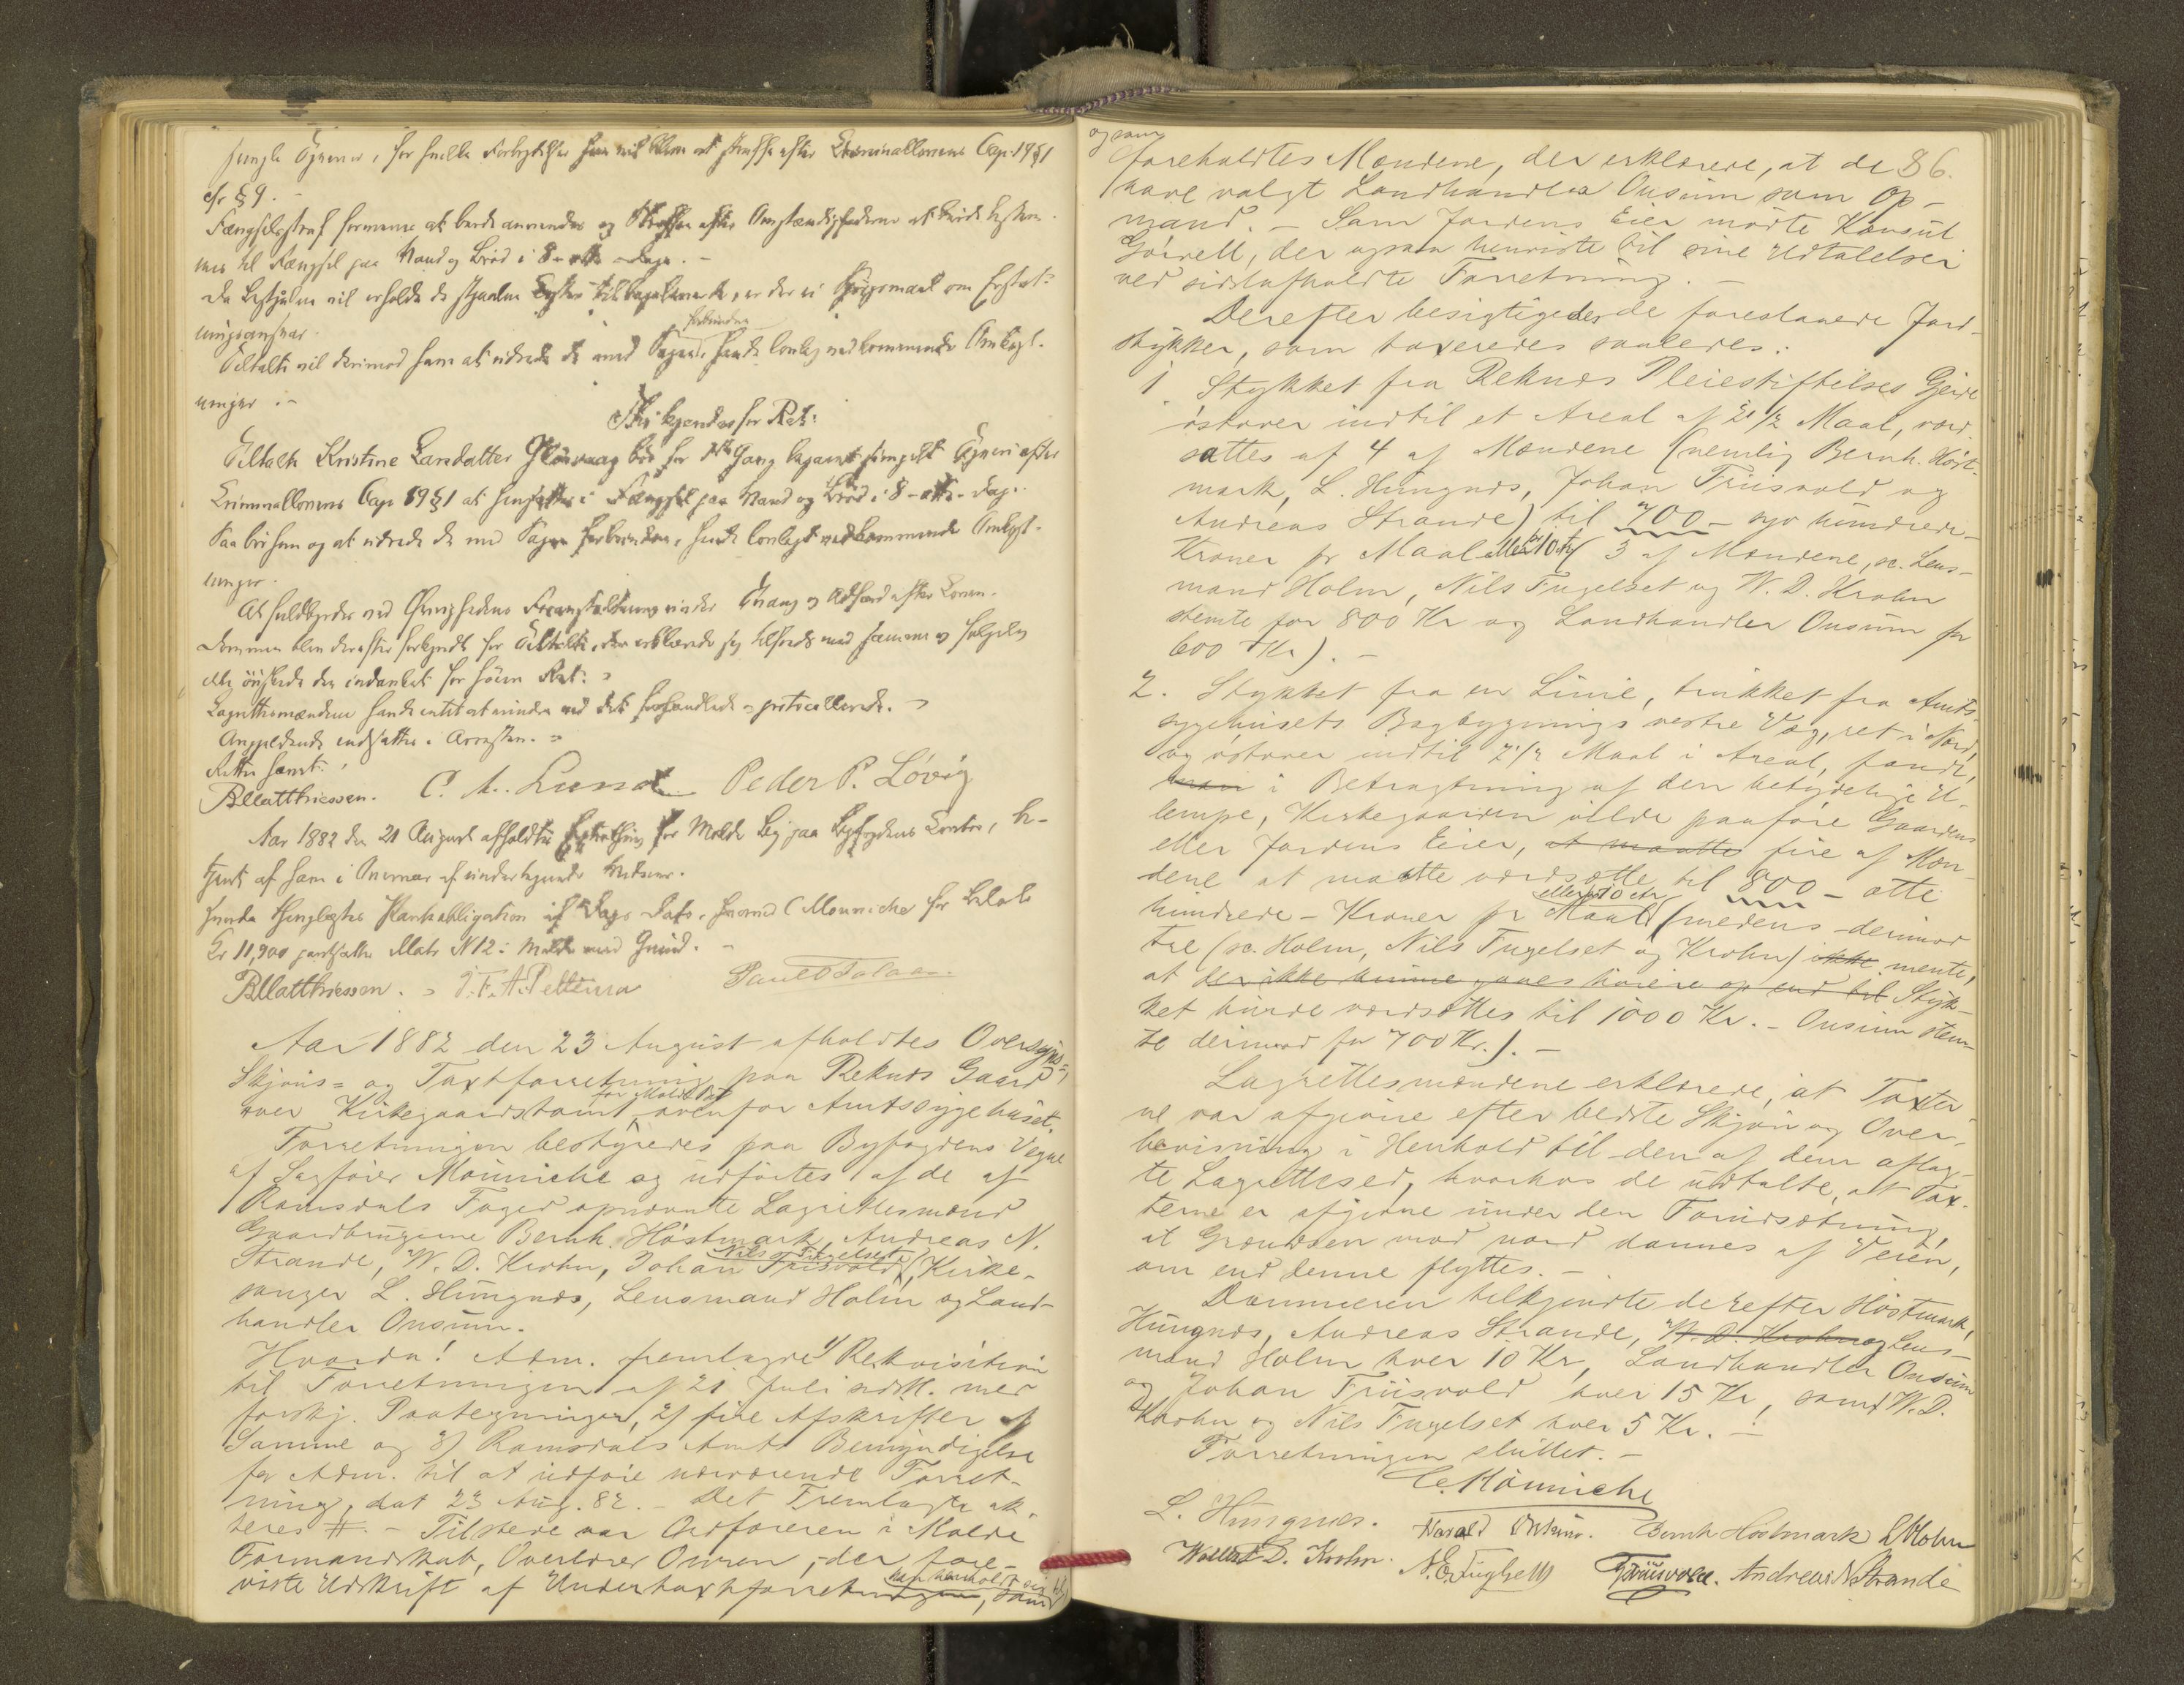 simple Tyverier, for hvilke Forbrydelser hun vil blive at straffe efter Criminallovens Cap. 19 § 1
cfr § 9. -
Fængselsstraf formenes at burde anvendes og Straffen efter Omstændighederne at burde bestem-
mes til Fængsel paa Vand og Brød i 8 - otte - Dage. -
Da Bestjaalne vil erholde de stjaalne Sager tilbageleveret, er der ei Spørgsmaal om Erstat-
ningsansvar.
Tiltalte vil derimod have at udrede de med Sagen forbundne, heude lovlig vedkommende Omkost-
ninger :-
Thi kjendes for Ret:
Tiltalte Kristine Larsdatter bør for 1ste Gang begaaet simpelt Tyveri efter
Criminallovens Cap 19 § 1 at hensættes i Fængsel paa Vand og Brød i 8 - otte - Dage.
Saa bør hun og at udrede de med Sagen forbundne, lovligt vedkommende Omkost-
ninger.
At fuldbyrdes ved Øvrighedens Foranstaltning under Tvang og Adfærd efter Loven.
Dommen blev derefter forkyndt for Tiltalte, der erklærede sig tilfreds med samme og følgelig
ikke ønskede den indanket for høiere Ret. -
Lagrettesmændene havde intet at erindre ved det forhandlede og protocollerede. -
Angjeldende indsattes i Arresten. -
Retten hævet.
BMatthiessen. C. A. Lund Peder P. Løvig
Aar 1882 den 21 August afholdtes Extrathing for Molde By paa Byfogdens Contor, be-
tjent af ham i Overvær af undertegnede Vidner.
Hvorda thinglæstes Panteobligation af Dags Dato, hvorved C Mønniche for Beløb
Kr 11,900 pantsætter Matr N 12: Molde med Grund. -
BMatthiessen. - J. F. A. Pettersen Paul O Solaas.
Aar 1882 den 23 August afholdtes Oversyns-,
Skjøns- og Taxtforretning paa Reknæs Gaard
for Molde By
over Kirkegaardstomt ovenfor Amtssygehuset.
Forretningen bestyredes paa Byfogdens Vegne
af Sagfører Mønniche og udførtes af de af
Romsdals Foged opnævnte Lagrettesmænd
Gaardbrugerne Bernh. Høstmark, Andreas N.
Nils Fugelset
Strande, W. D. Krohn, Johan Friisvold, Kirke-
sanger L. Hungnæs, Lensmand Holm og Land-
handler Onsum.
Hvorda! Adm. fremlagde 1/ Rekvisition
til Forretningen af 21 Juli sidstl. med
forskj. Paategninger, 2/ fire Afskrifter af
Samme og 3/ Romsdals Amts Bemyndigelse
for Adm. til at udføre nærværende Forret-
ning, dat 23 Aug. 82. - Det Fremlagte ak-
teres #. - Tilstede var Ordføreren i Molde
Formandskab, Overlærer Owren, der fore-
han henholdt sig til
viste Udskrift af Undertaxtforretningen, som
og saa
foreholdtes Mændene, der erklærede, at de 86.
have valgt Landhandler Onsum som Op-
mand. - Som Jordens Eier mødte Konsul
Gørvell, der ogsaa henviste til sine Udtalelser
ved sidstafholdte Forretning. -
Derefter besigtigedes de foreslaaede Jord-
stykker, som taxeredes saaledes:
1. Stykket fra Reknæs Pleiestiftelses Gjerde
østover indtil et Areal af 21/2 Maal, værd-
sattes af 4 af Mændene (nemlig Bernh. Høst-
mark, L. Hungnes, Johan Friisvold og
Andreas Strande) til 700 - syv hundrede -
Kroner pr Maal eller 10 ar ( 3 af Mændene, sc. Lens-
mand Holm, Nils Fugelset og W. D. Krohn
stemte for 800 Kr og Landhandler Onsum for
600 Kr). -
2. Stykket fra en Linie, trukket fra Amts-
sygehusets Bagbygnings vestre Væg, ret i Nord,
og østover indtil 21/2 Maal i Areal, fandt,
man i Betragtning af den betydelige U-
lempe, Kirkegaarden vilde paaføre Gaardens
eller Jordens Eier, at maatte fire af Mæn-
dene at maatte værdsætte til 800 - otte
eller 10 ar
hundrede - Kroner pr Maal (medens derimod
tre (sc. Holm, Nils Fugelset og Krohn) ikke mente,
at der ikke kunne gaaes høiere op end til Styk-
ket burde værdsættes til 1000 Kr. - Onsum stem-
te derimod for 700 Kr.). -
Lagrettesmændene erklærede, at Taxter-
ne var afgivne efter bedste Skjøn og Over-
bevisning i Henhold til den af dem aflag-
te Lagrettesed, hvorhos de udtalte, at Tax-
terne er afgivne under den Forudsætning,
at Grændsen mod nord dannes af Veien,
om end denne flyttes. -
Dommeren tilkjendte derefter Høstmark,
Hungnæs, Andreas Strande, W. D. Krohn og Lens-
mand Holm hver 10 Kr, Landhandler Onsum
og Johan Friisvold hver 15 Kr, samt W. D.
Krohn og Nils Fugelset hver 5 Kr. -
Forretningen sluttet. -
C. Mønniche
L. Hungnes. Harald Onsum. Bernh Høstmark Holm
Wollert D. Krohn. N. E. Fugelset J. Friisvold. Andreas N Strande